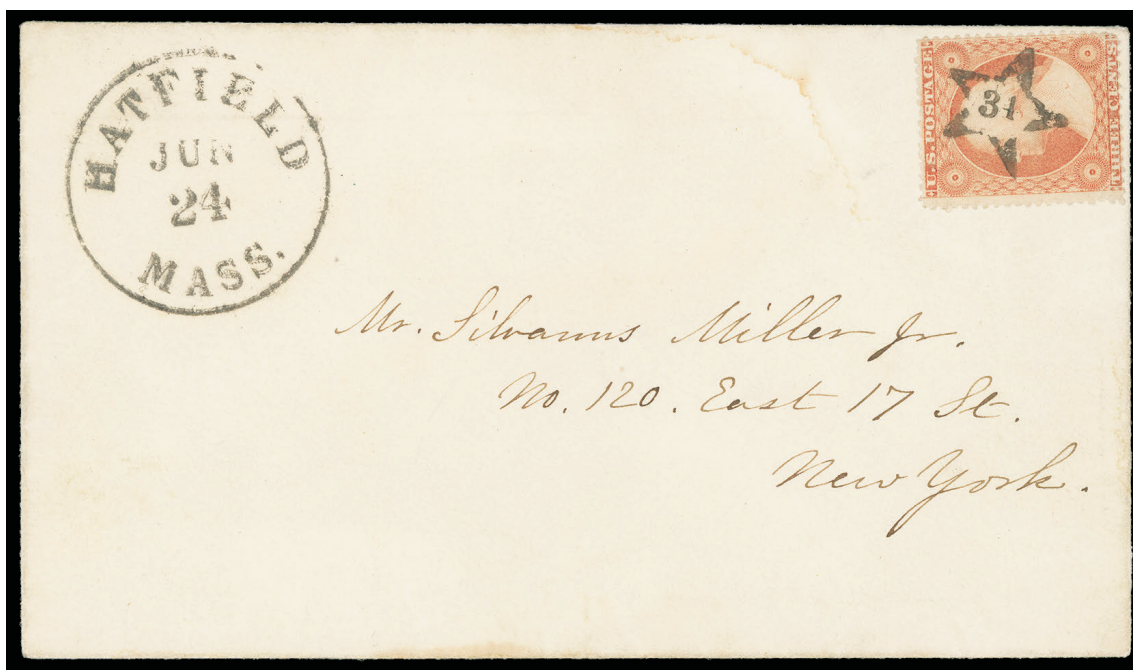 HATFIELD
JUN
24
MASS.
U.S. POSTAGE
THREE CENTS
34
Mr. Silvanus Miller Jr.
No. 120. East 17 St.
New York.